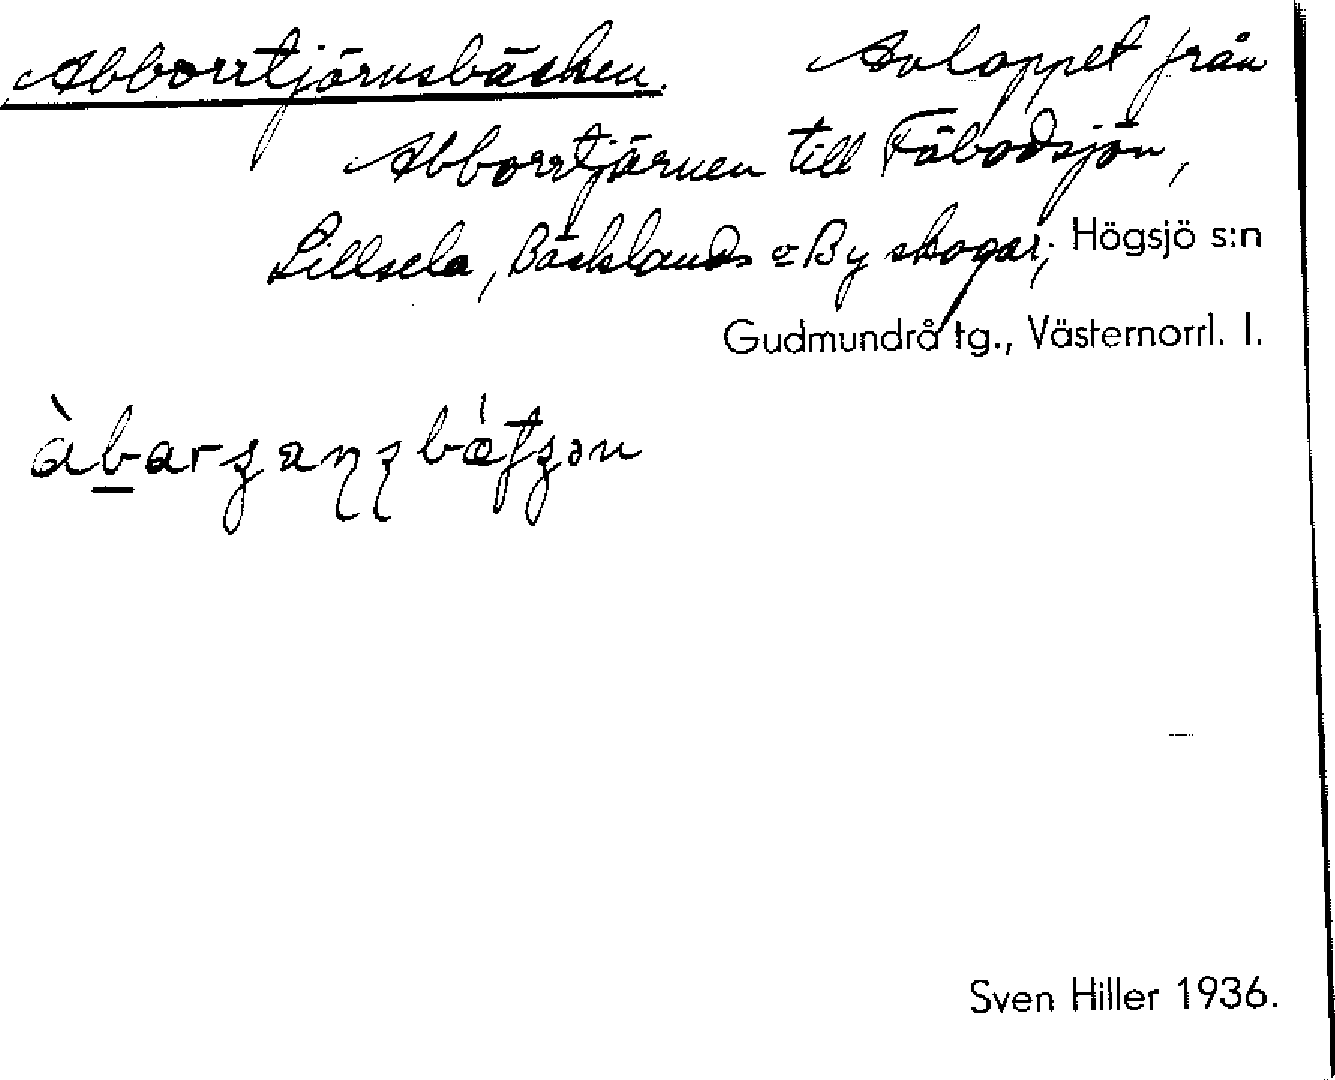 Abborrtjärnsbäcken. Avloppet från
Abborrtjärnen till Fäbodsjön,
Lillsela, Bäcklands o By skogar, Högsjö s:n
Gudmundrå tg., Västernorrl. l.
Sven Hiller 1936.